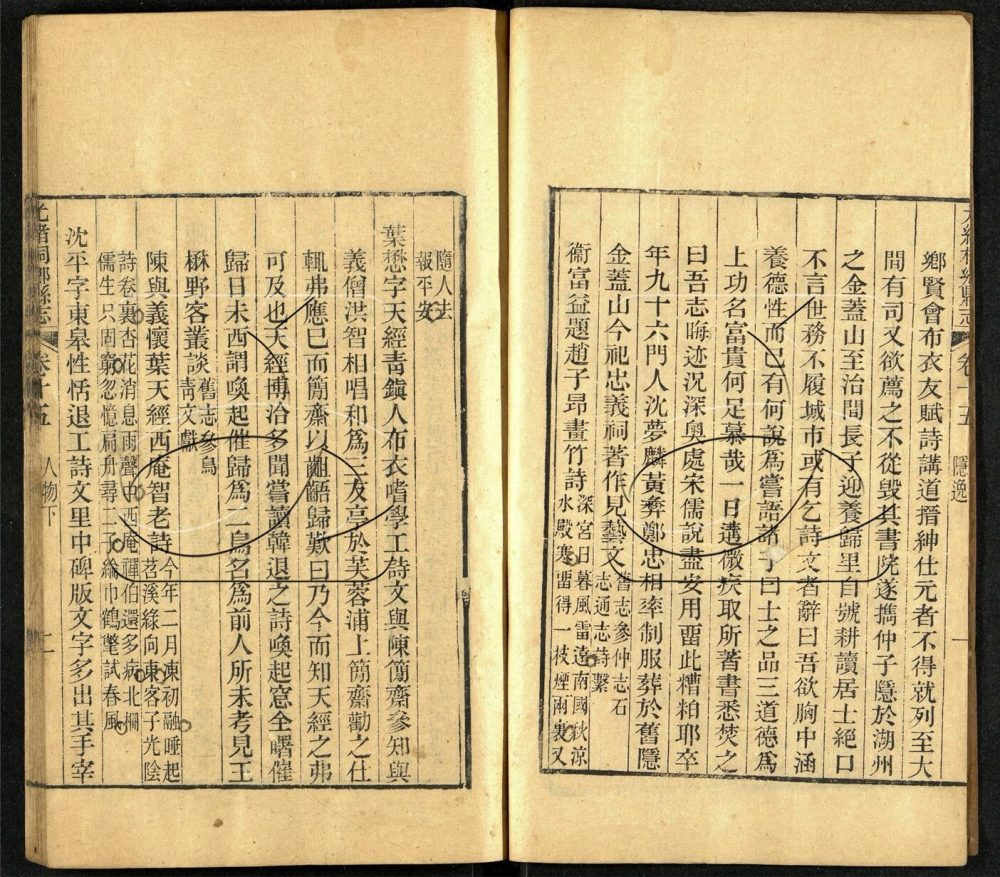 鄉賢會布衣友賦詩講道搢紳仕元者不得就列至大
間有司又欲薦之不從毀其書院遂擕仲子隱於湖州
之金蓋山至治間長子迎養歸里自號耕讀居士絕口
不言世務不履城市或有乞詩文者辭曰吾欲胸中涵
養德性而已有何說為嘗語諸子曰士之品三道德為
上功名富貴何足慕哉一日遘微疾取所著書悉焚之
曰吾志晦迹況深奧處宋儒說盡安用畱此糟粕耶卒
年九十六門人沈夢麟黃彝鄭忠相率制服葬於舊隱
金蓋山今祀忠義祠著作見藝文
舊志參仲志石
志通志詩繫
衞富益題趙子昻畫竹詩
深宮日暮風雷遠南國秋涼
水殿寒畱得一枝煙雨裏又
卷十五
隱逸
一
隨人去
報平安
葉懋字天經靑鎭人布衣嗜學工詩文與陳簡齋參知與
義僧洪智相唱和為三友亭於芙蓉浦上簡齋勸之仕
輒弗應已而簡齋以齟齬歸歎曰乃今而知天經之弗
可及也天經博洽多聞嘗讀韓退之詩喚起窓全曙催
歸日未西謂喚起催歸為二鳥名為前人所未考見王
楙野客叢談
舊志參烏
靑文獻
陳與義懷葉天經西庵智老詩
今年二月凍初融睡起
苕溪綠向東客子光陰
詩卷裏杏花消息雨聲中西庵禪伯還多病北柵
儒生只固窮忽憶扁舟尋二子綸巾鶴氅試春風
沈平字東皋性恬退工詩文里中碑版文字多出其手宰
光緖桐鄉縣志
卷十五
人物下